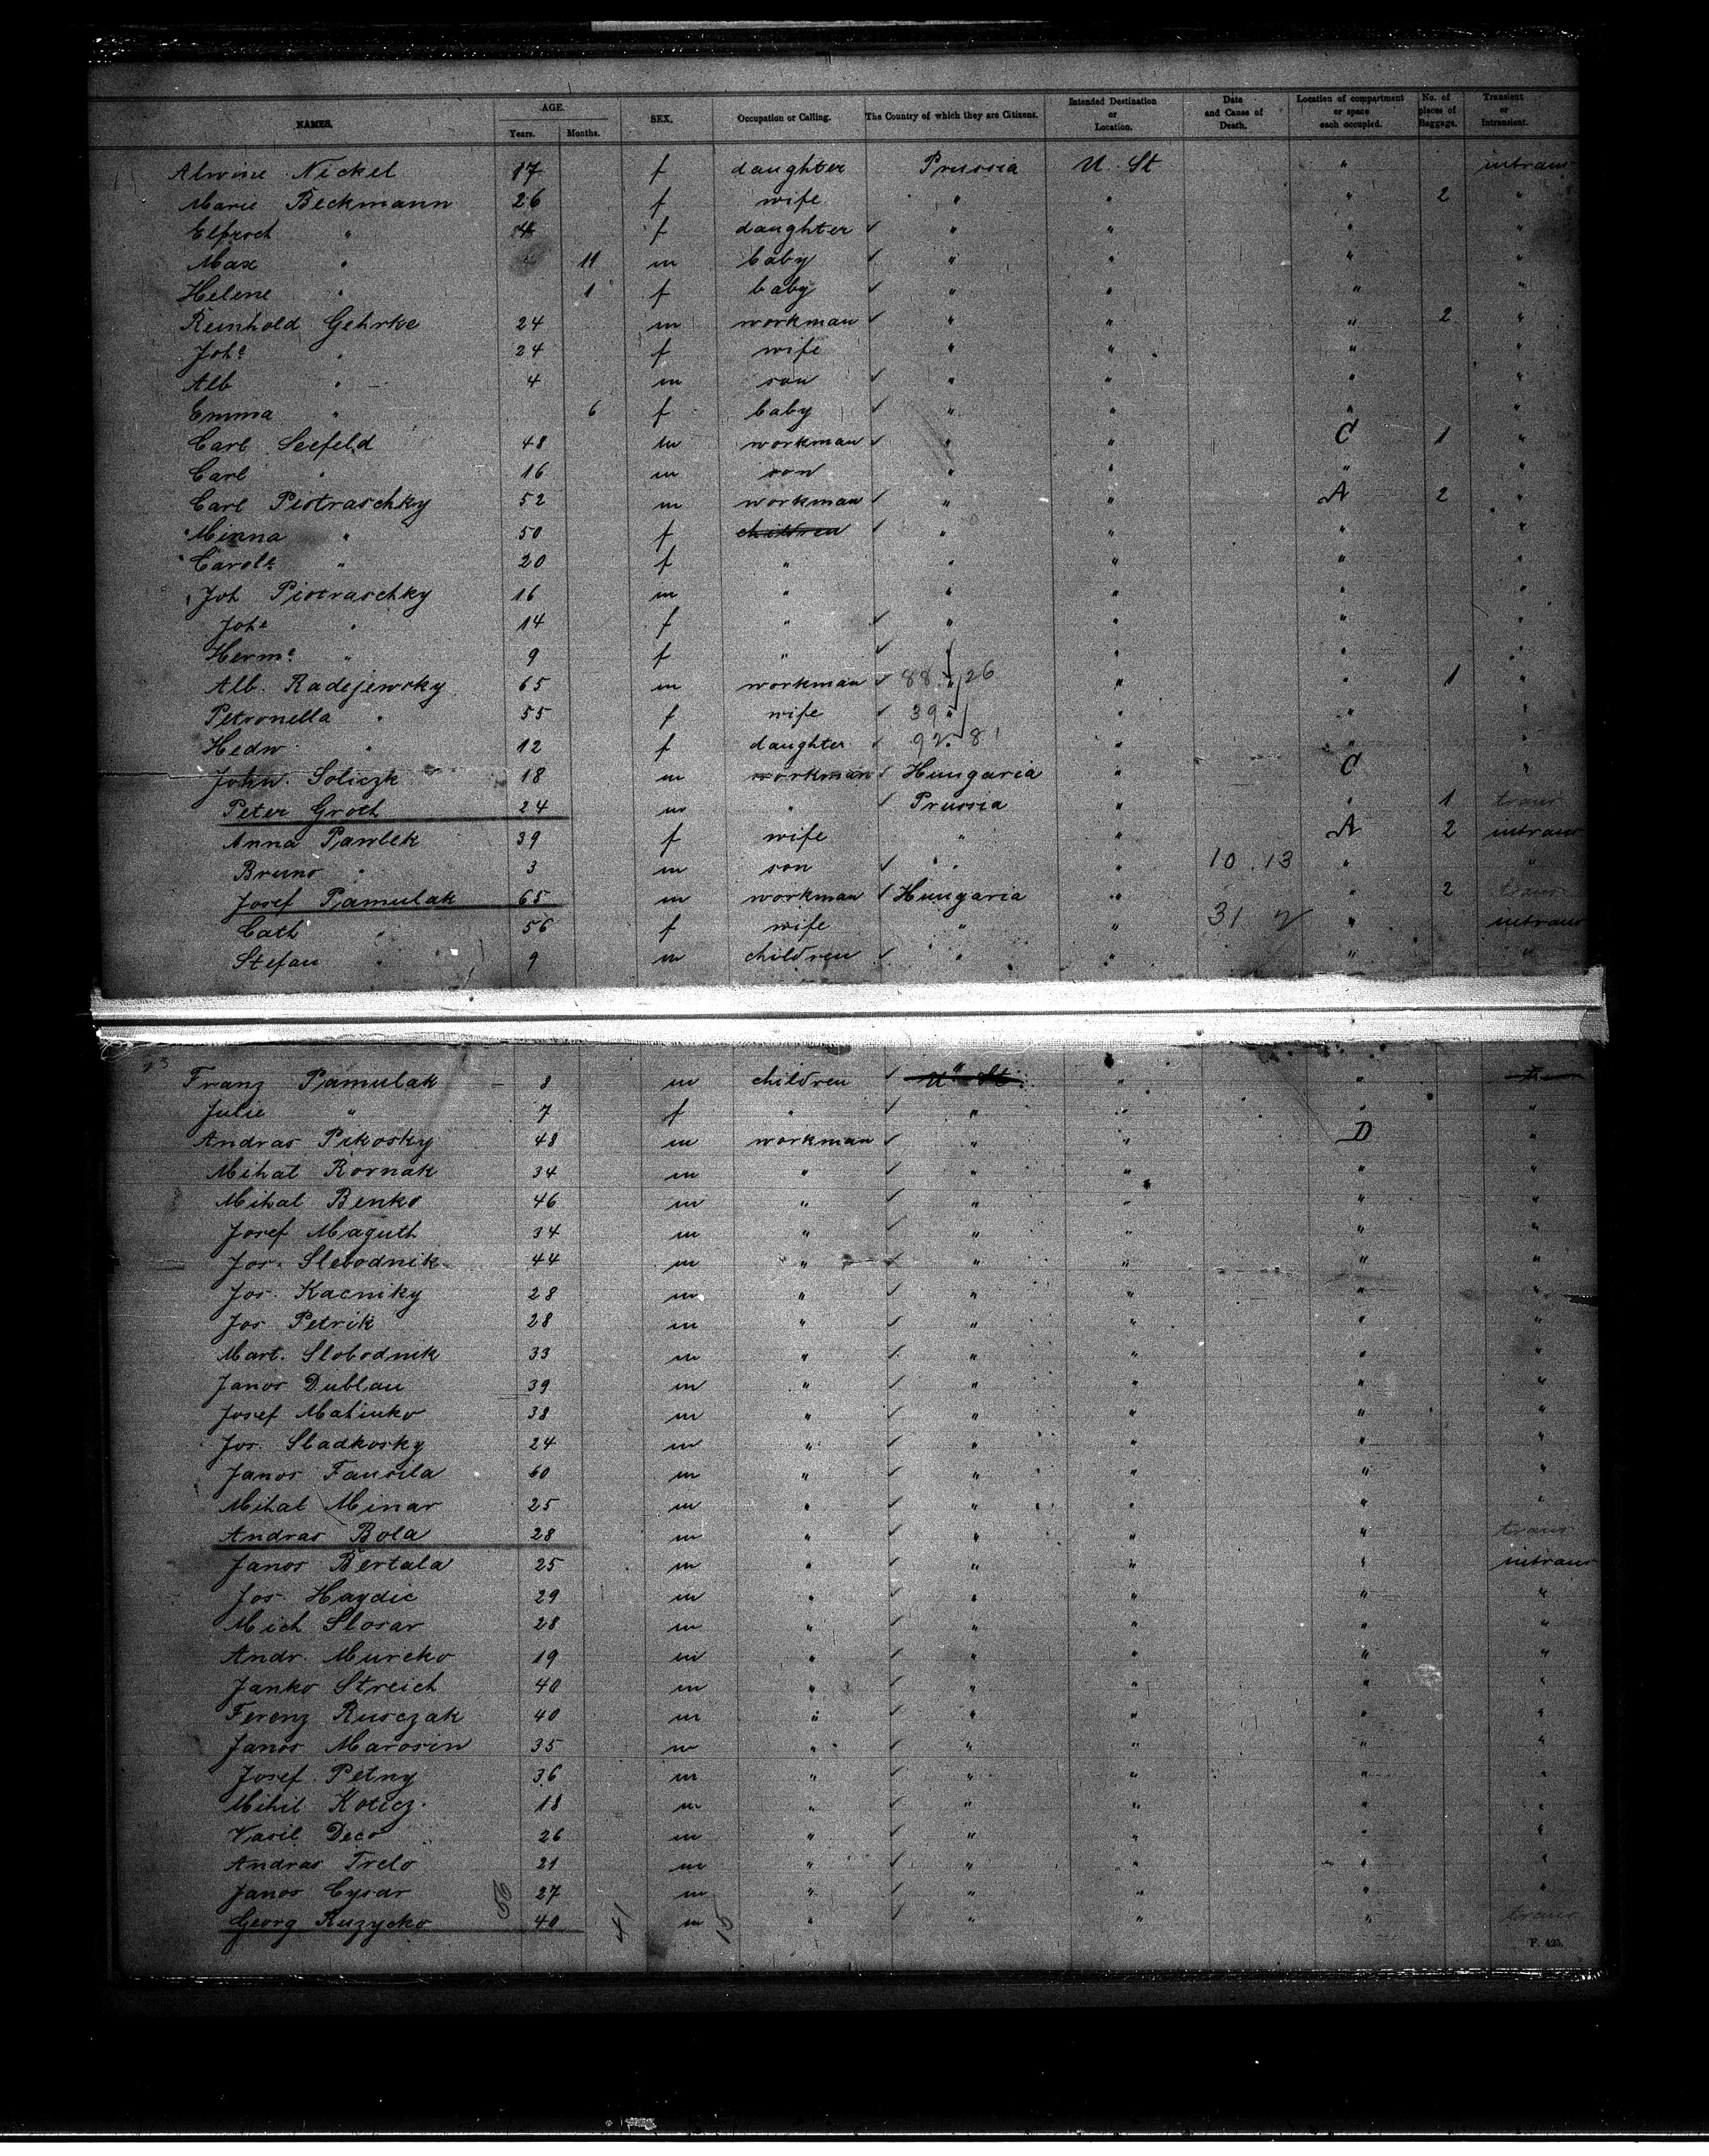 NAMES. AGE. Years. Months. SEX. Occupation or Calling. The Country of which they are Citizens. Intended Destination or Location. Date and Cause of Death. Location of compartment or space each occupied. No. of pieces of Baggage. Transient or Intransient.
Alwine Nickel 17 f daughter Prussia U. St " intrans
Marie Beckmann 26 f wife " " " 2 "
" 4 f daughter ✓ " " " "
Max " 11 m baby ✓ " " " "
Helene " 1 f baby ✓ " " " "
Reinhold Gehrke 24 m workman ✓ " " " 2 "
Joh.e " 24 f wife " " " "
Alb " 4 m son ✓ " " " "
Emma " 6 f baby ✓ " " " "
Carl Seefeld 48 m workman ✓ " " C 1 "
Carl " 16 m son " " " "
Carl Piotraschky 52 m workman ✓ " " A 2 "
Minna " 50 f children ✓ " " " "
Carole " 20 f " " " " "
Joh Piotraschky 16 m " " " " "
Johe " 14 f " ✓ " " " "
Herm.e " 9 f " ✓ " " " "
Alb. Radejewsky 65 m workman ✓ 88 " 26 " " 1 "
Petronella " 55 f wife ✓ 39 " " " "
Hedw " 12 f daughter ✓ 92 81 " " "
John. Soliczk 18 m workman ✓ Hungaria " C "
Peter Groth 24 m " ✓ Prussia " " 1 trans
Anna Pawlek 39 f wife " " A 2 intrans
Bruno " 3 m son ✓ " " 10 . 13 " "
Josef Pamulak 65 m workman ✓ Hungaria " " 2 trans
Cath " 56 f wife " " 31 " intrans
Stefan " 9 m children ✓ " " " "
Franz Pamulak 8 m children ✓ U. St " "
Julie " 7 f " ✓ " " " "
Andras Pikosky 48 m workman ✓ " " D "
Mihal Rornak 34 m " ✓ " " " "
Mihal Benko 46 m " ✓ " " " "
Josef Maguth 34 m " ✓ " " " "
Jos. Slebodnik 44 m " ✓ " " " "
Jos. Kacniky 28 m " ✓ " " " "
Jos Petrik 28 m " ✓ " " " "
Mart. Slobodnik 33 m " ✓ " " " "
Janos Dublan 39 m " ✓ " " " "
Josef Matinko 38 m " ✓ " " " "
Jos. Sladkosky 24 m " ✓ " " " "
Janos 60 m " ✓ " " " "
Mihal Minar 25 m " ✓ " " " "
Andras Bola 28 m " ✓ " " " trans
Janos Bertala 25 m " ✓ " " " intrans
Jos Haydic 29 m " ✓ " " " "
Mich Slosar 28 m " ✓ " " " "
Andr. Mureko 19 m " ✓ " " " "
Janko Streich 40 m " ✓ " " " "
Ferenz Rusczak 40 m " ✓ " " " "
Janos Marosin 35 m " ✓ " " " "
Josef Petny 36 m " ✓ " " " "
Mihil Koticz 18 m " ✓ " " " "
Vasil Deco 26 m " ✓ " " " "
Andras Trelo 21 m " ✓ " " " "
Janos Cysar 27 m " ✓ " " " "
Georg Ruzycko 40 m " ✓ " " " trans
56 41 15
F. 425.